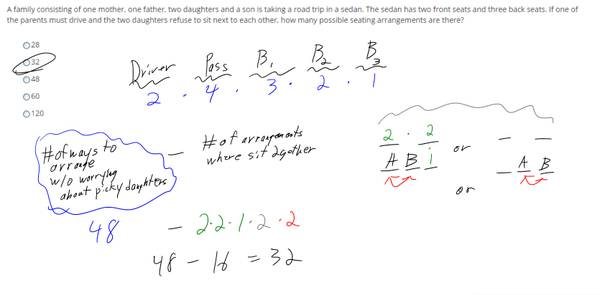 A family consisting of one mother, one father, two daughters and a son is taking a road trip in a sedan. The sedan has two front seats and three back seats. If one of
the parents must drive and the two daughters refuse to sit next to each other, how many possible seating arrangements are there?
28
32
48
60
120
Driver Pass B1 B2 B3
2 . 4 . 3 . 2 . 1
# of ways to
arrange
w/o worrying
about picky daughters
—
# of arrangements
where sit together
2 . 2
A B 1 or — —
— A B
or
48 — 2·2·1·2·2
48 — 16 = 32